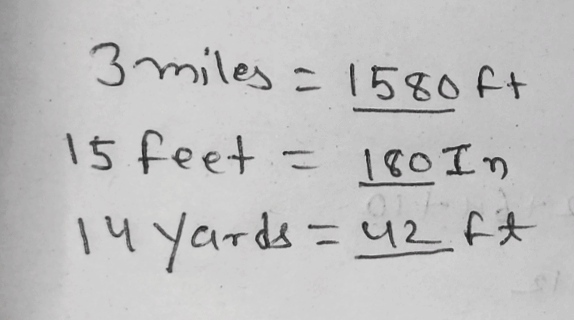 3 miles = 1580 ft
15 feet = 180 In
14 yards = 42 ft